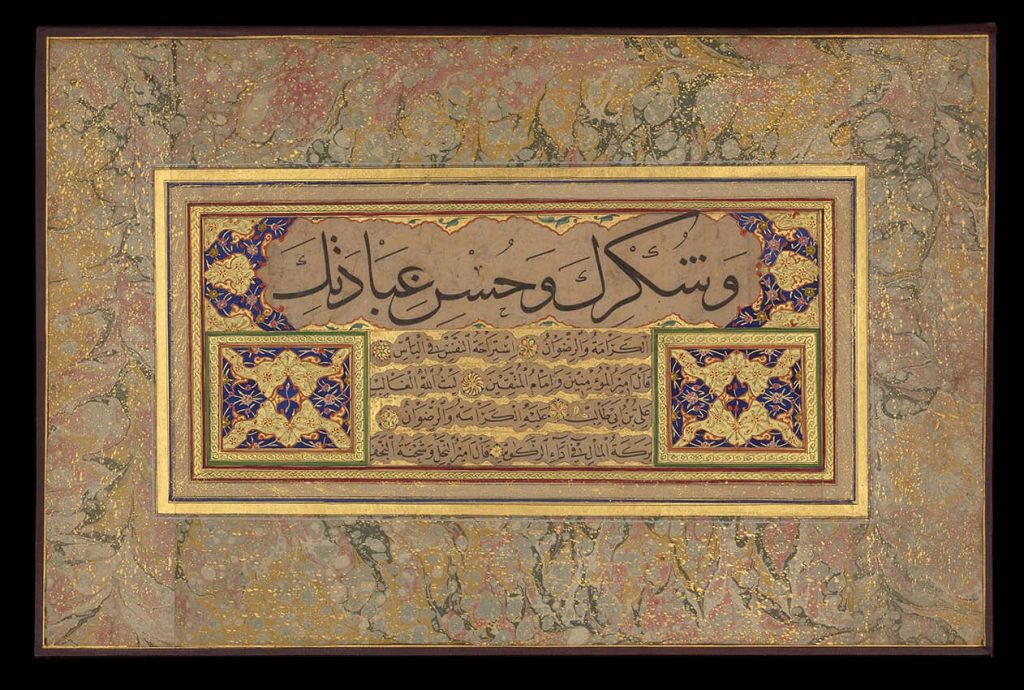 وَشُكْرِكَ وَحُسْنِ عِبَادَتِكَ
الكرامة والرضوان استراحة النفس في اليأس
قال امير المؤمنين وامام المتقين ليث الله الغالب
علي بن ابي طالب عليه الكرامة والرضوان
بركة المال في اداء الزكوة قال امير النحل